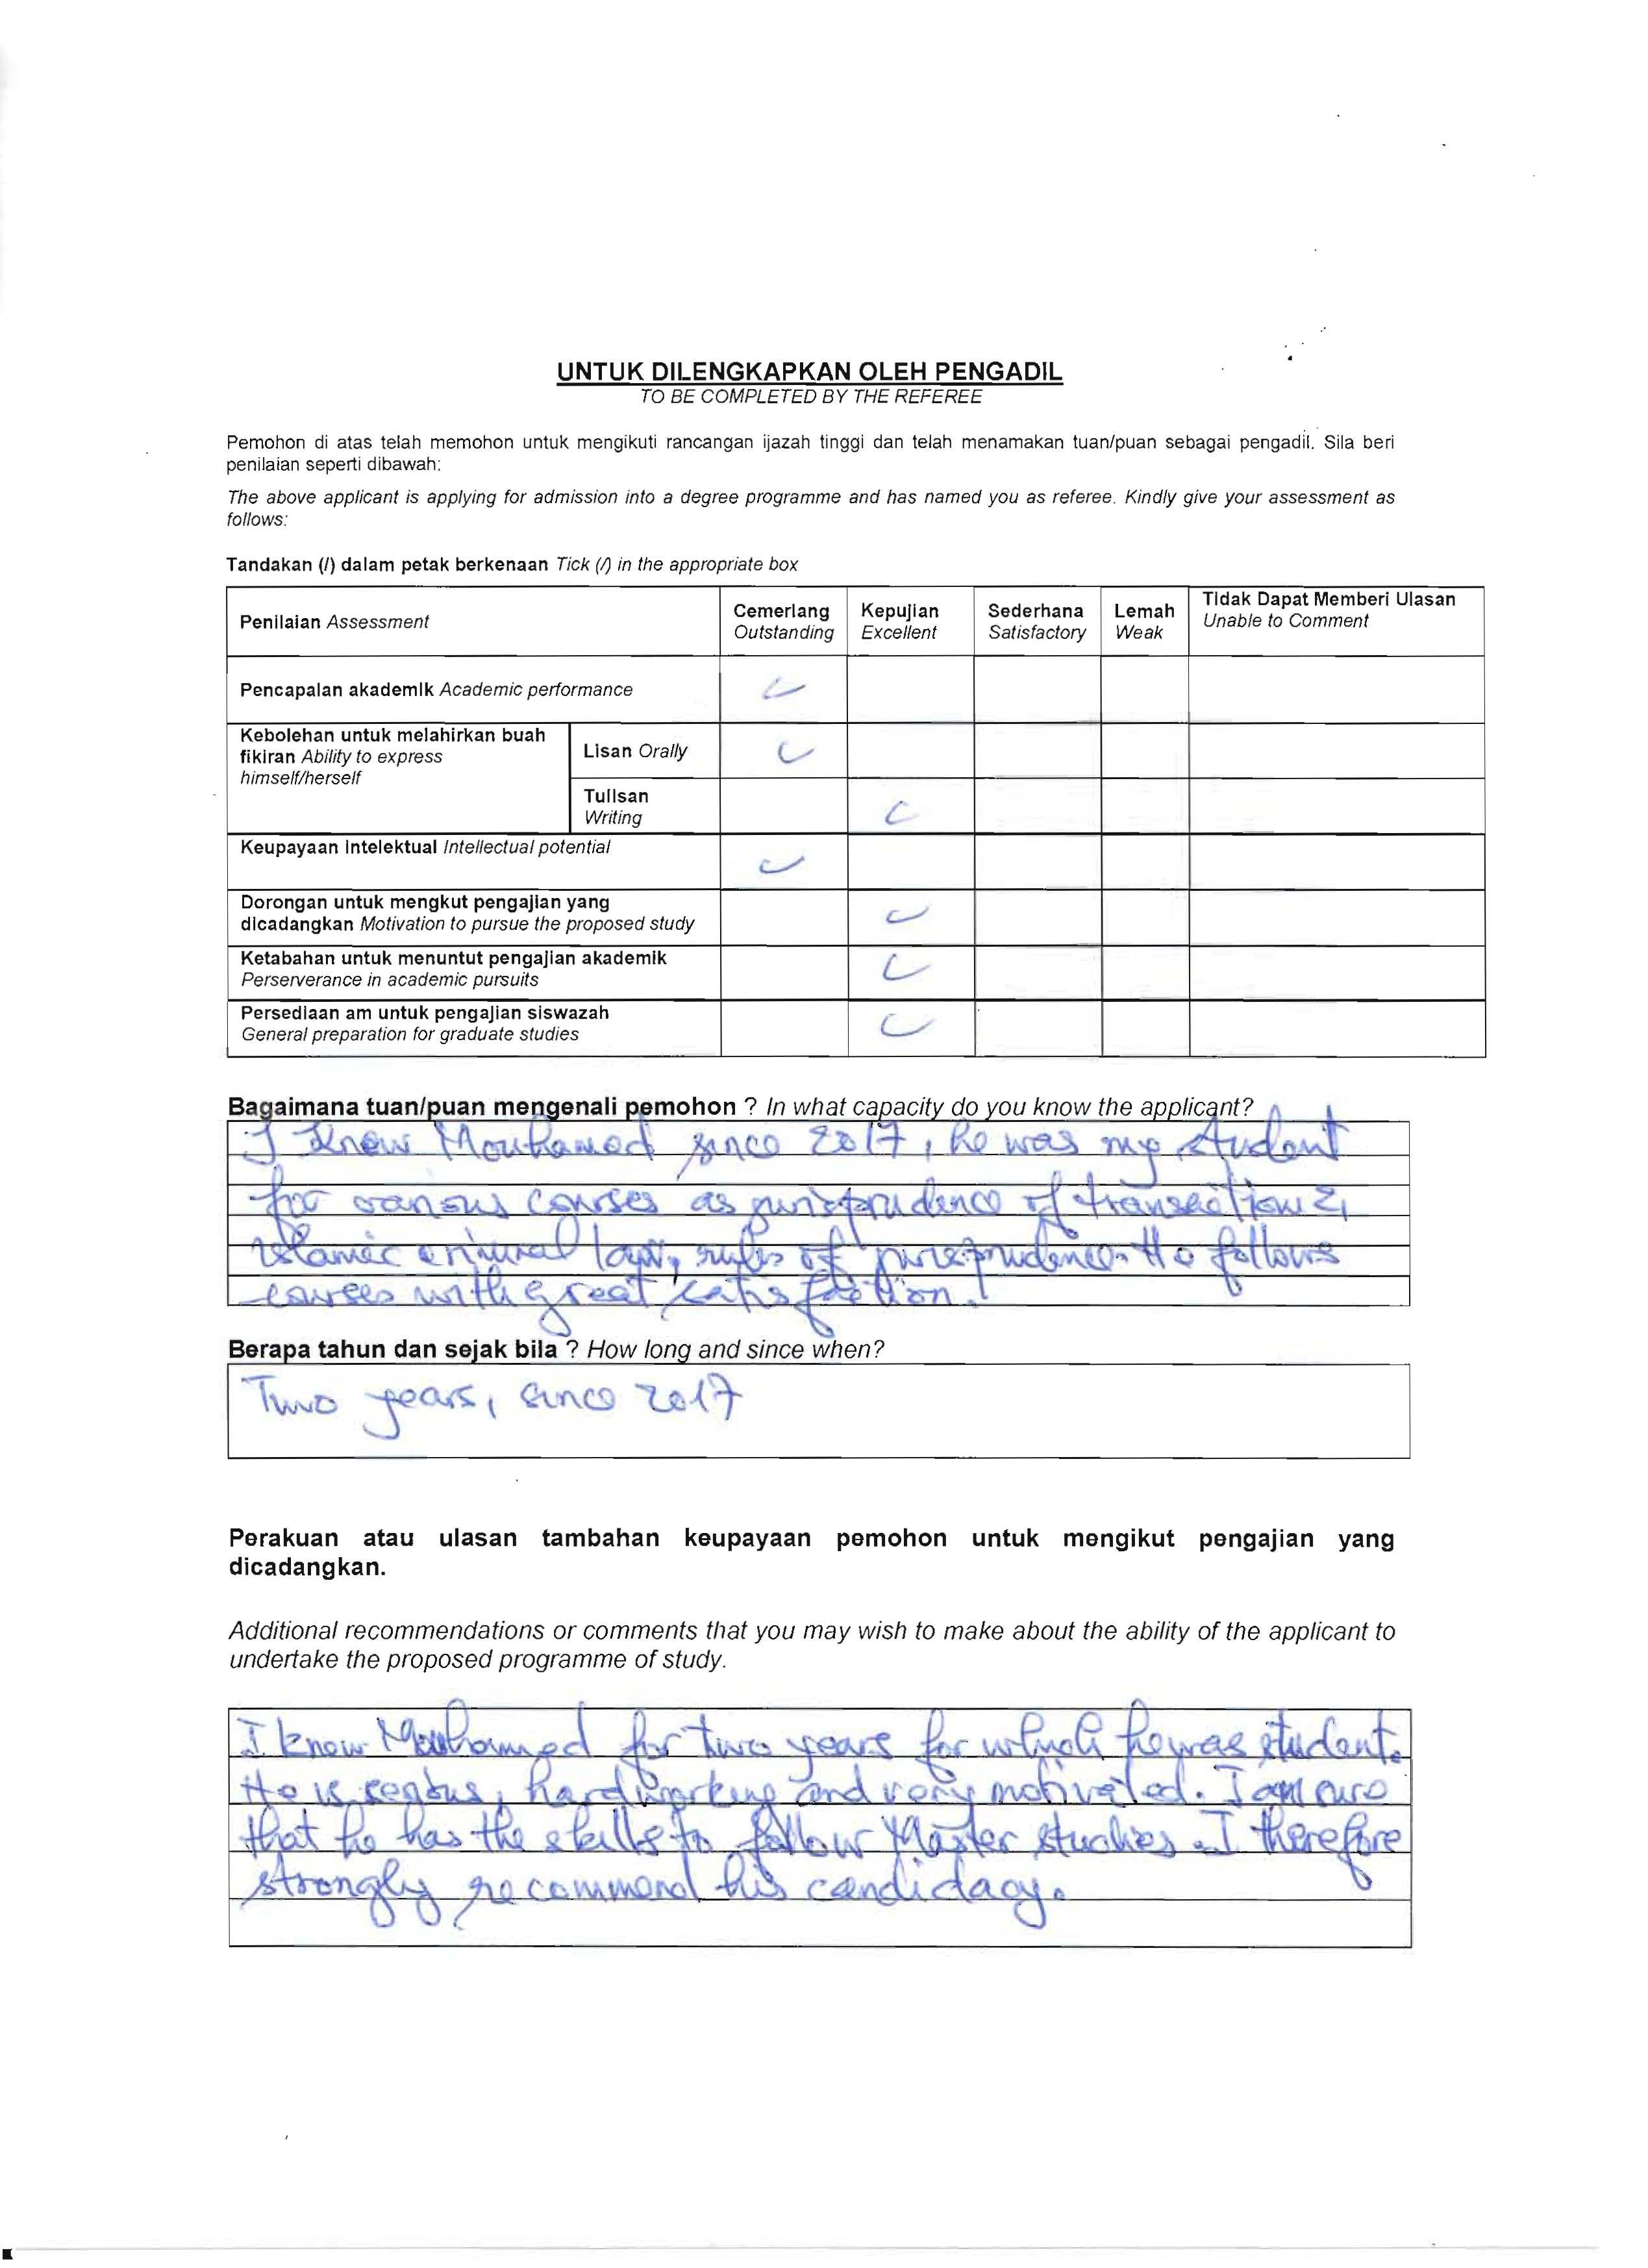 UNTUK DILENGKAPKAN OLEH PENGADIL
TO BE COMPLETED BY THE REFEREE
Pemohon di atas telah memohon untuk mengikuti rancangan ijazah tinggi dan telah menamakan tuan/puan sebagai pengadil. Sila beri
penilaian seperti dibawah:
The above applicant is applying for admission into a degree programme and has named you as referee. Kindly give your assessment as
follows:
Tandakan (/) dalam petak berkenaan Tick (/) in the appropriate box
Penilaian Assessment
Cemerlang
Outstanding
Kepujian
Excellent
Sederhana
Satisfactory
Lemah
Weak
Tidak Dapat Memberi Ulasan
Unable to Comment
Pencapaian akademik Academic performance
Kebolehan untuk melahirkan buah
fikiran Ability to express
himself/herself
Lisan Orally
Tulisan
Writing
Keupayaan intelektual Intellectual potential
Dorongan untuk mengkut pengajian yang
dicadangkan Motivation to pursue the proposed study
Ketabahan untuk menuntut pengajian akademik
Perserverance in academic pursuits
Persediaan am untuk pengajian siswazah
General preparation for graduate studies
Bagaimana tuan/puan mengenali pemohon ? In what capacity do you know the applicant?
I know Mouhamed since 2017, he was my student
for various courses as jurisprudence of transaction 2,
Islamic criminal law, rules of jurisprudence. He follows
courses with great satisfaction.
Berapa tahun dan sejak bila ? How long and since when?
Two years, since 2017
Perakuan atau ulasan tambahan keupayaan pemohon untuk mengikut pengajian yang
dicadangkan.
Additional recommendations or comments that you may wish to make about the ability of the applicant to
undertake the proposed programme of study.
I know Mouhamed for two years for which he was student.
He is serious, hardworking and very motivated. I am sure
that he has the skills to follow Master studies. I therefore
strongly recommend his candidacy.